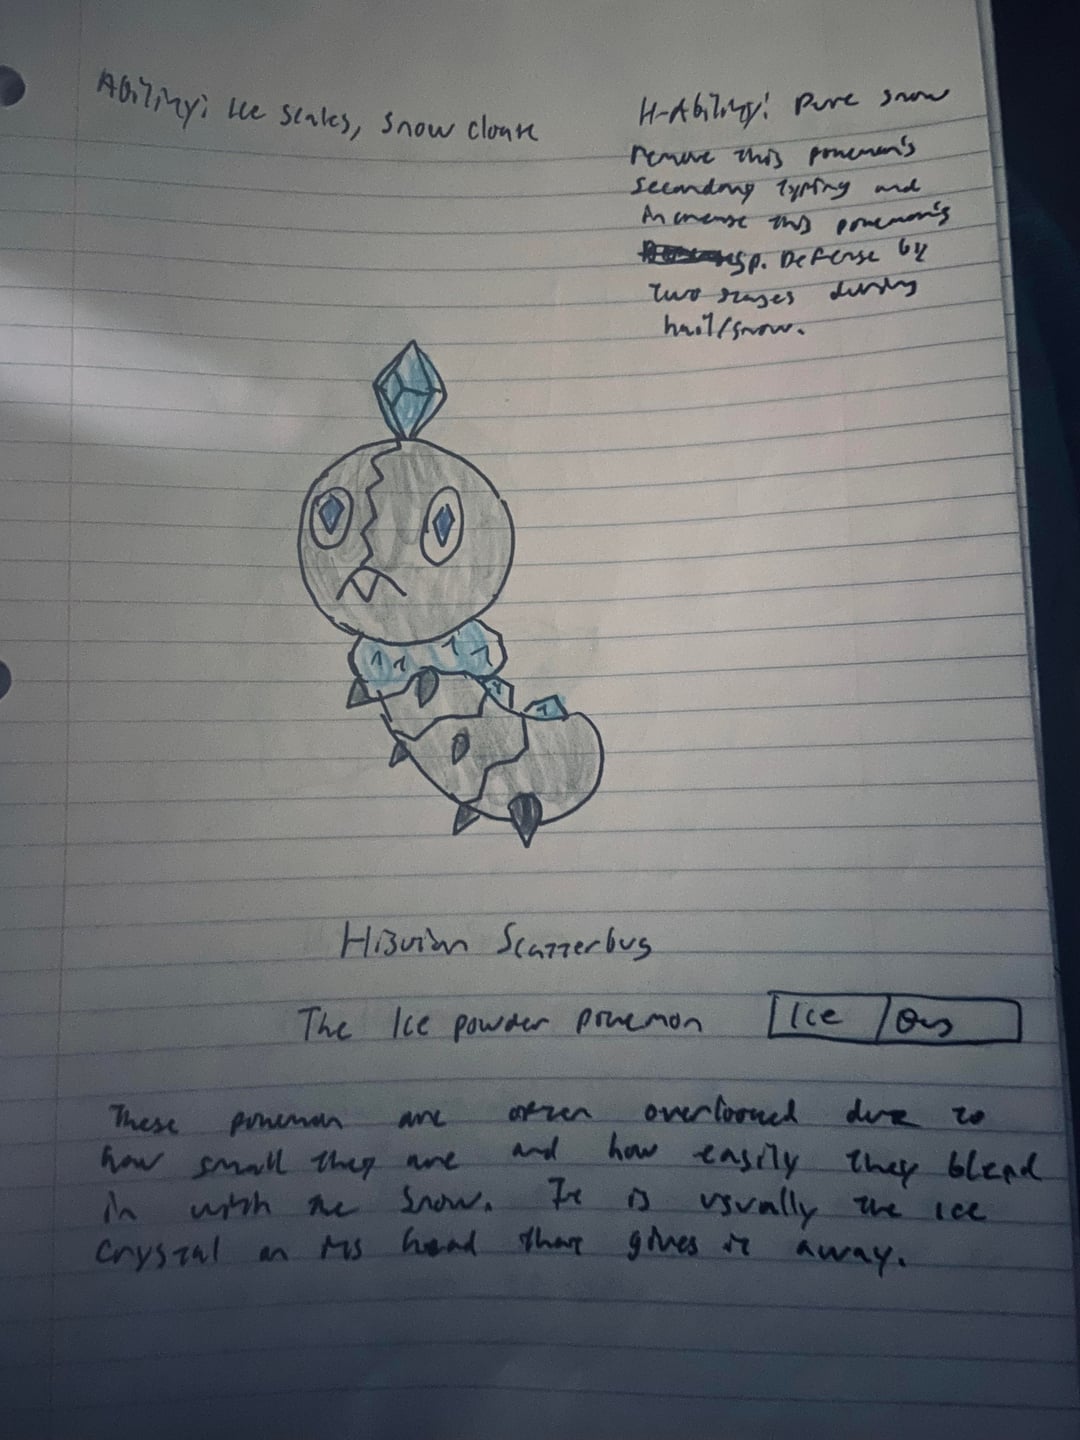 Ability: Ice scales, Snow cloak
H-Ability: Pure snow
remove this pokemon's
secondary typing and
increase this pokemon's
sp. Defense by
two stages during
hail/snow.
Hisuian Scatterbug
The Ice powder pokemon
Ice / Bug
These pokemon are often overlooked due to
how small they are and how easily they blend
in with the snow. It is usually the ice
crystal on its head that gives it away.